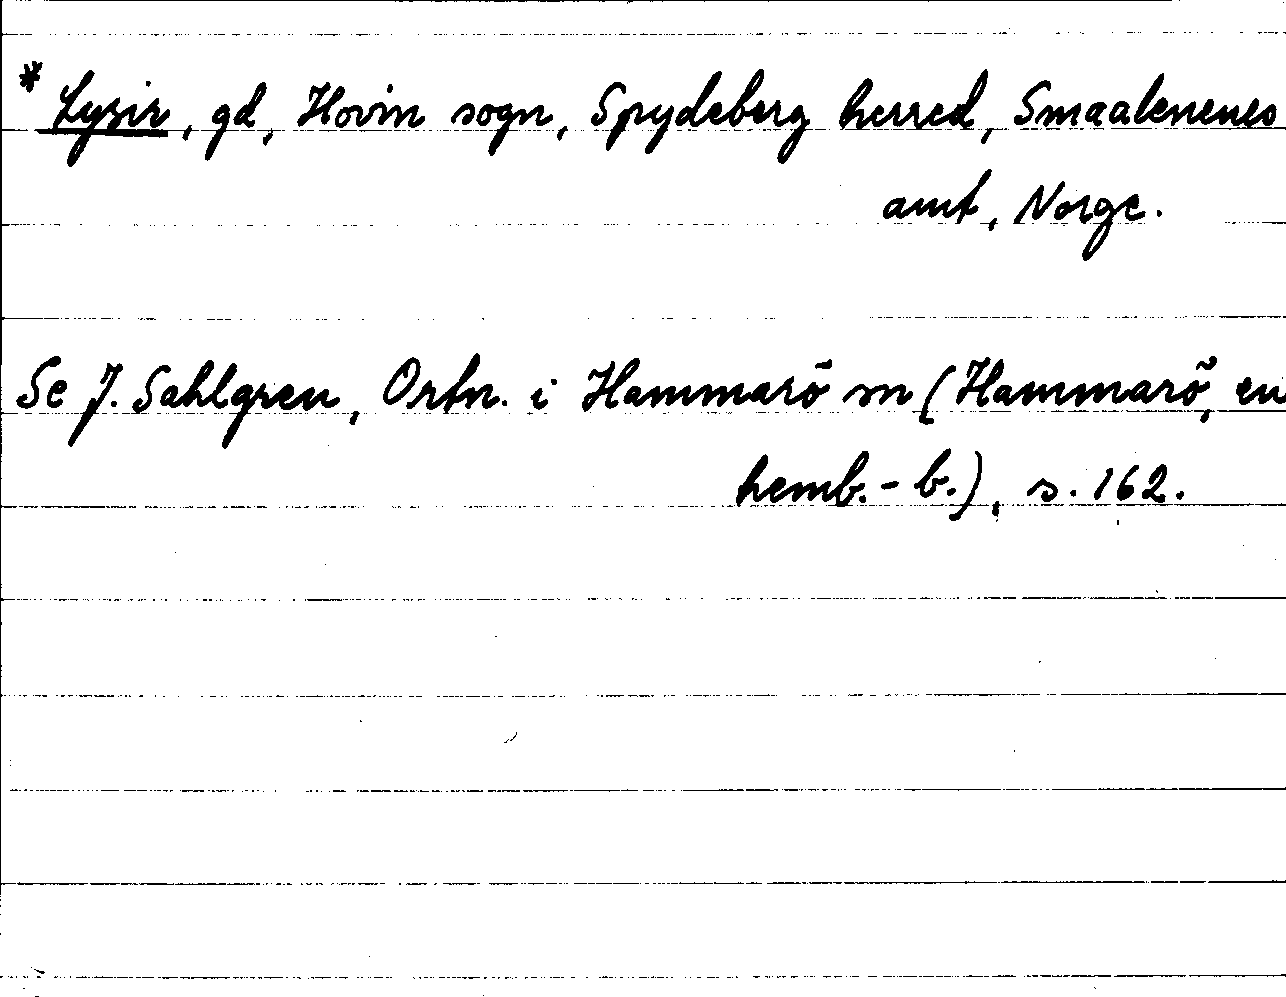 * Lysir, gd, Hovin sogn, Spydeberg herred, Smaalenenes
amt, Norge.
Se J. Sahlgren, Ortn. i Hammarö m (Hammarö, en
hemb.-b.), s. 162.